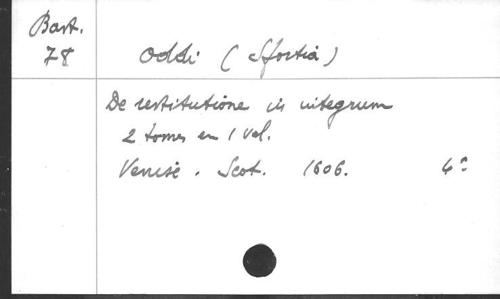 Bart.
78
Oddi (Sfortia)
De restitutione in integrum
2 tomes en 1 vol.
Venise. Scot. 1606. 4°